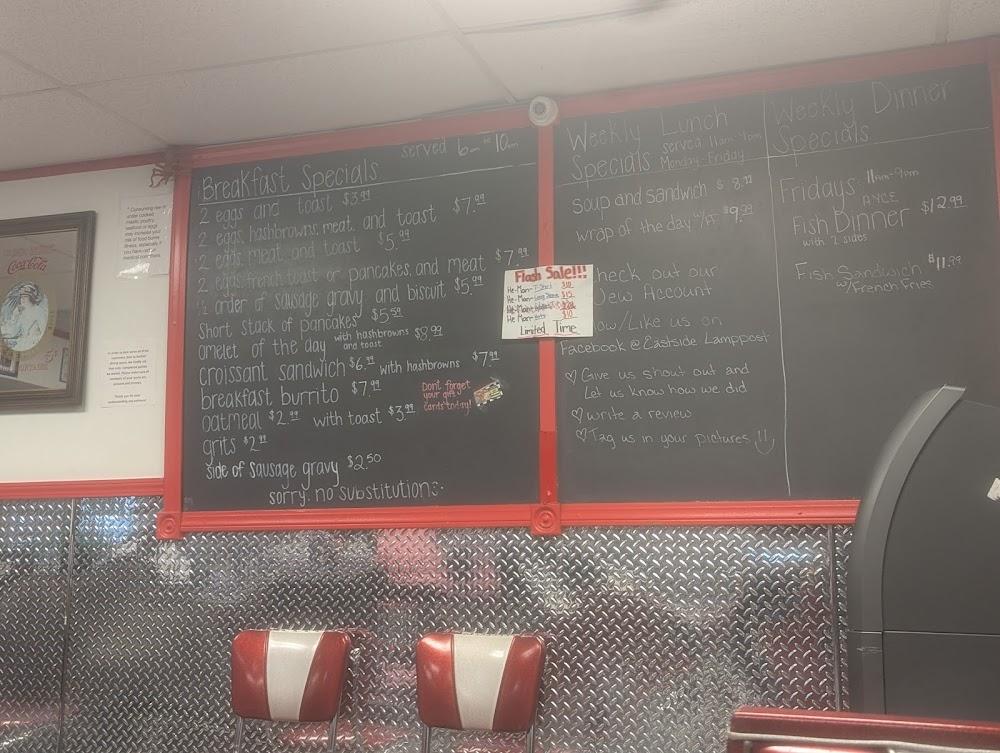 Breakfast Specials served 6am to 10am
2 eggs and toast $3.99
2 eggs, hashbrowns, meat, and toast $7.99
2 eggs, meat, and toast $5.99
2 eggs, french toast or pancakes, and meat $7.99
1/2 order of sausage gravy and biscuit $5.99
Short stack of pancakes $5.50
omelet of the day with hashbrowns and toast $8.99
croissant sandwich $6.99 with hashbrowns $7.99
breakfast burrito $7.99
oatmeal $2.99 with toast $3.99
grits $2.99
side of sausage gravy $2.50
sorry, no substitutions.
Don't forget
your gift
cards today!
Flash Sale!!!
He-Man- T-Shirt $10
He-Man- Long Sleeve $15
He-Man-
He Man- Hats $10
Limited Time
Weekly Lunch
Specials served 11am-4pm
Monday-Friday
soup and sandwich $8.99
wrap of the day w/FF $9.99
heck out our
ew Account
ow/Like us on
Facebook @ Eastside Lamppost
♡ Give us shout out and
Let us know how we did
♡ write a review
♡ Tag us in your pictures
Weekly Dinner
Specials
Fridays 11am-9pm
AYCE
Fish Dinner $12.99
with 2 sides
Fish Sandwich $11.99
w/French Fries
Coca-Cola